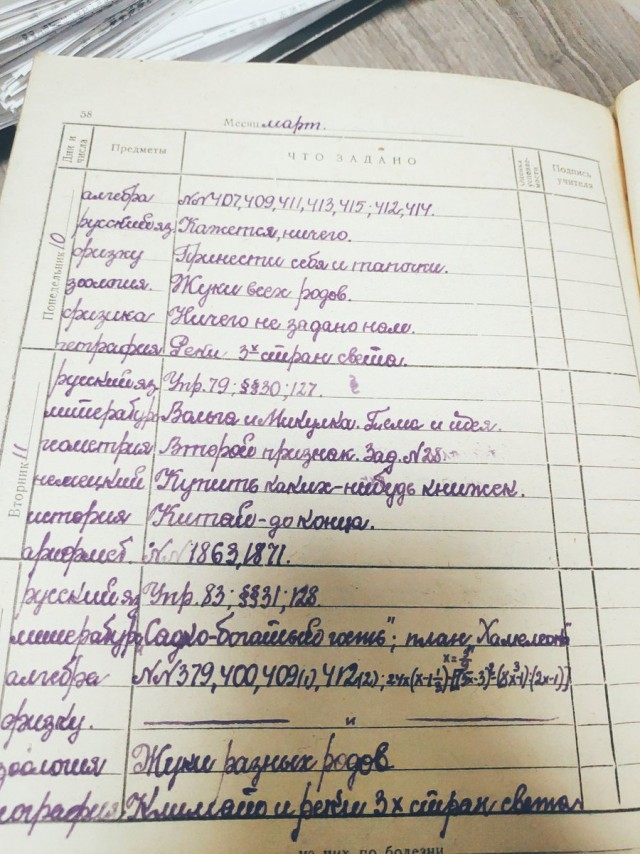 38
Месяц март.
Дни и числа Предметы ЧТО ЗАДАНО Оценка успеваемости Подпись учителя
Понедельник 10
алгебра №№407,409,411,413,415;412,414.
русский яз Кажется, ничего.
физку Принести себя и тапочки.
зоология. Жуки всех родов.
физика Ничего не задано нам.
география Реки 3х стран света.
Вторник 11
русский яз Упр. 79; §§30; 127.
литература Вольга и Микулка. Тема и идея.
геометрия Второй признак. Зад. №28
немецкий Купить каких-нибудь книжек.
история Китай - до конца.
арифмет. №№1863,1871.
русский яз Упр. 83; §§31; 128.
литература "Садко-богатый гость"; план "Хамелеон"
алгебра №№379,400,409(1),412(2);
физку. и
зоология Жуки разных родов
география Климат и реки 3х стран света
их по болезни